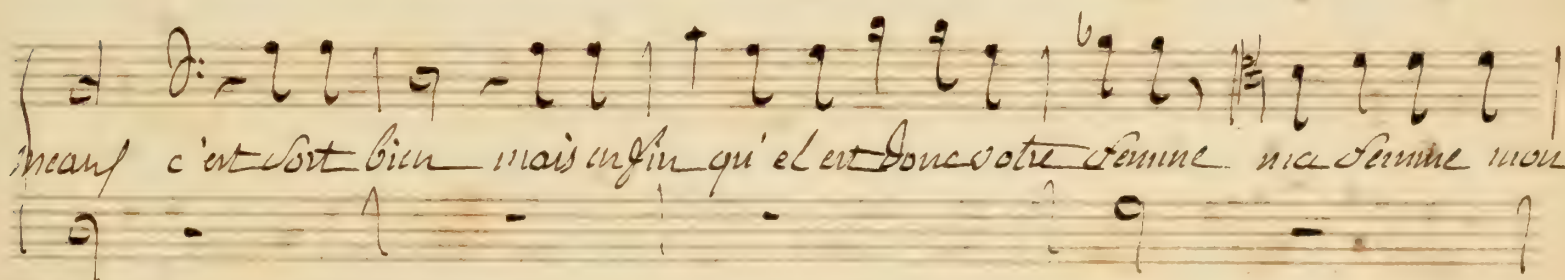 meaux c'est fort bien mais enfin qu'el est donc votre femme ma femme mon